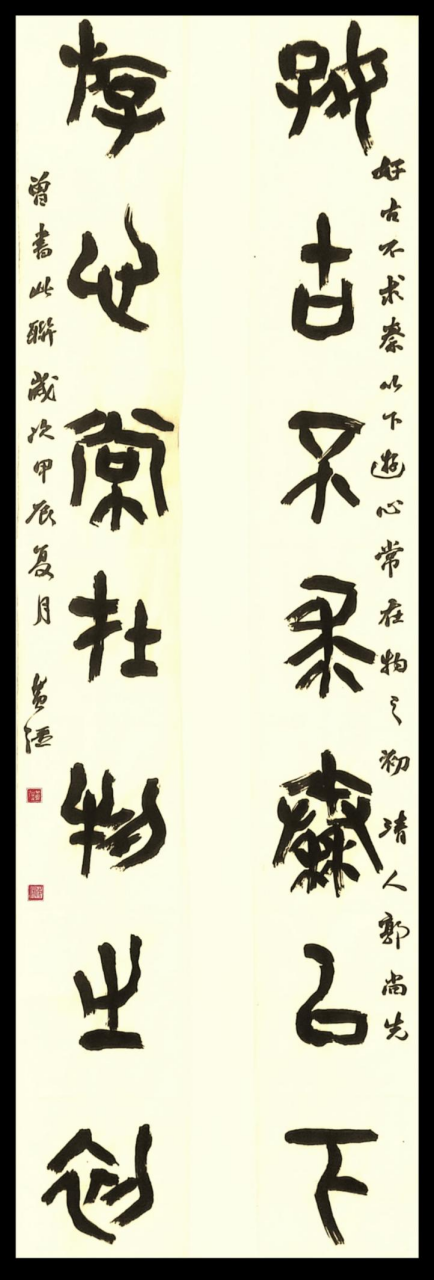 好古不求秦以下
好古不求秦以下遊心常在物之初 清人郭尚先
游心常在物之初
曾書此聯歲次甲辰夏月